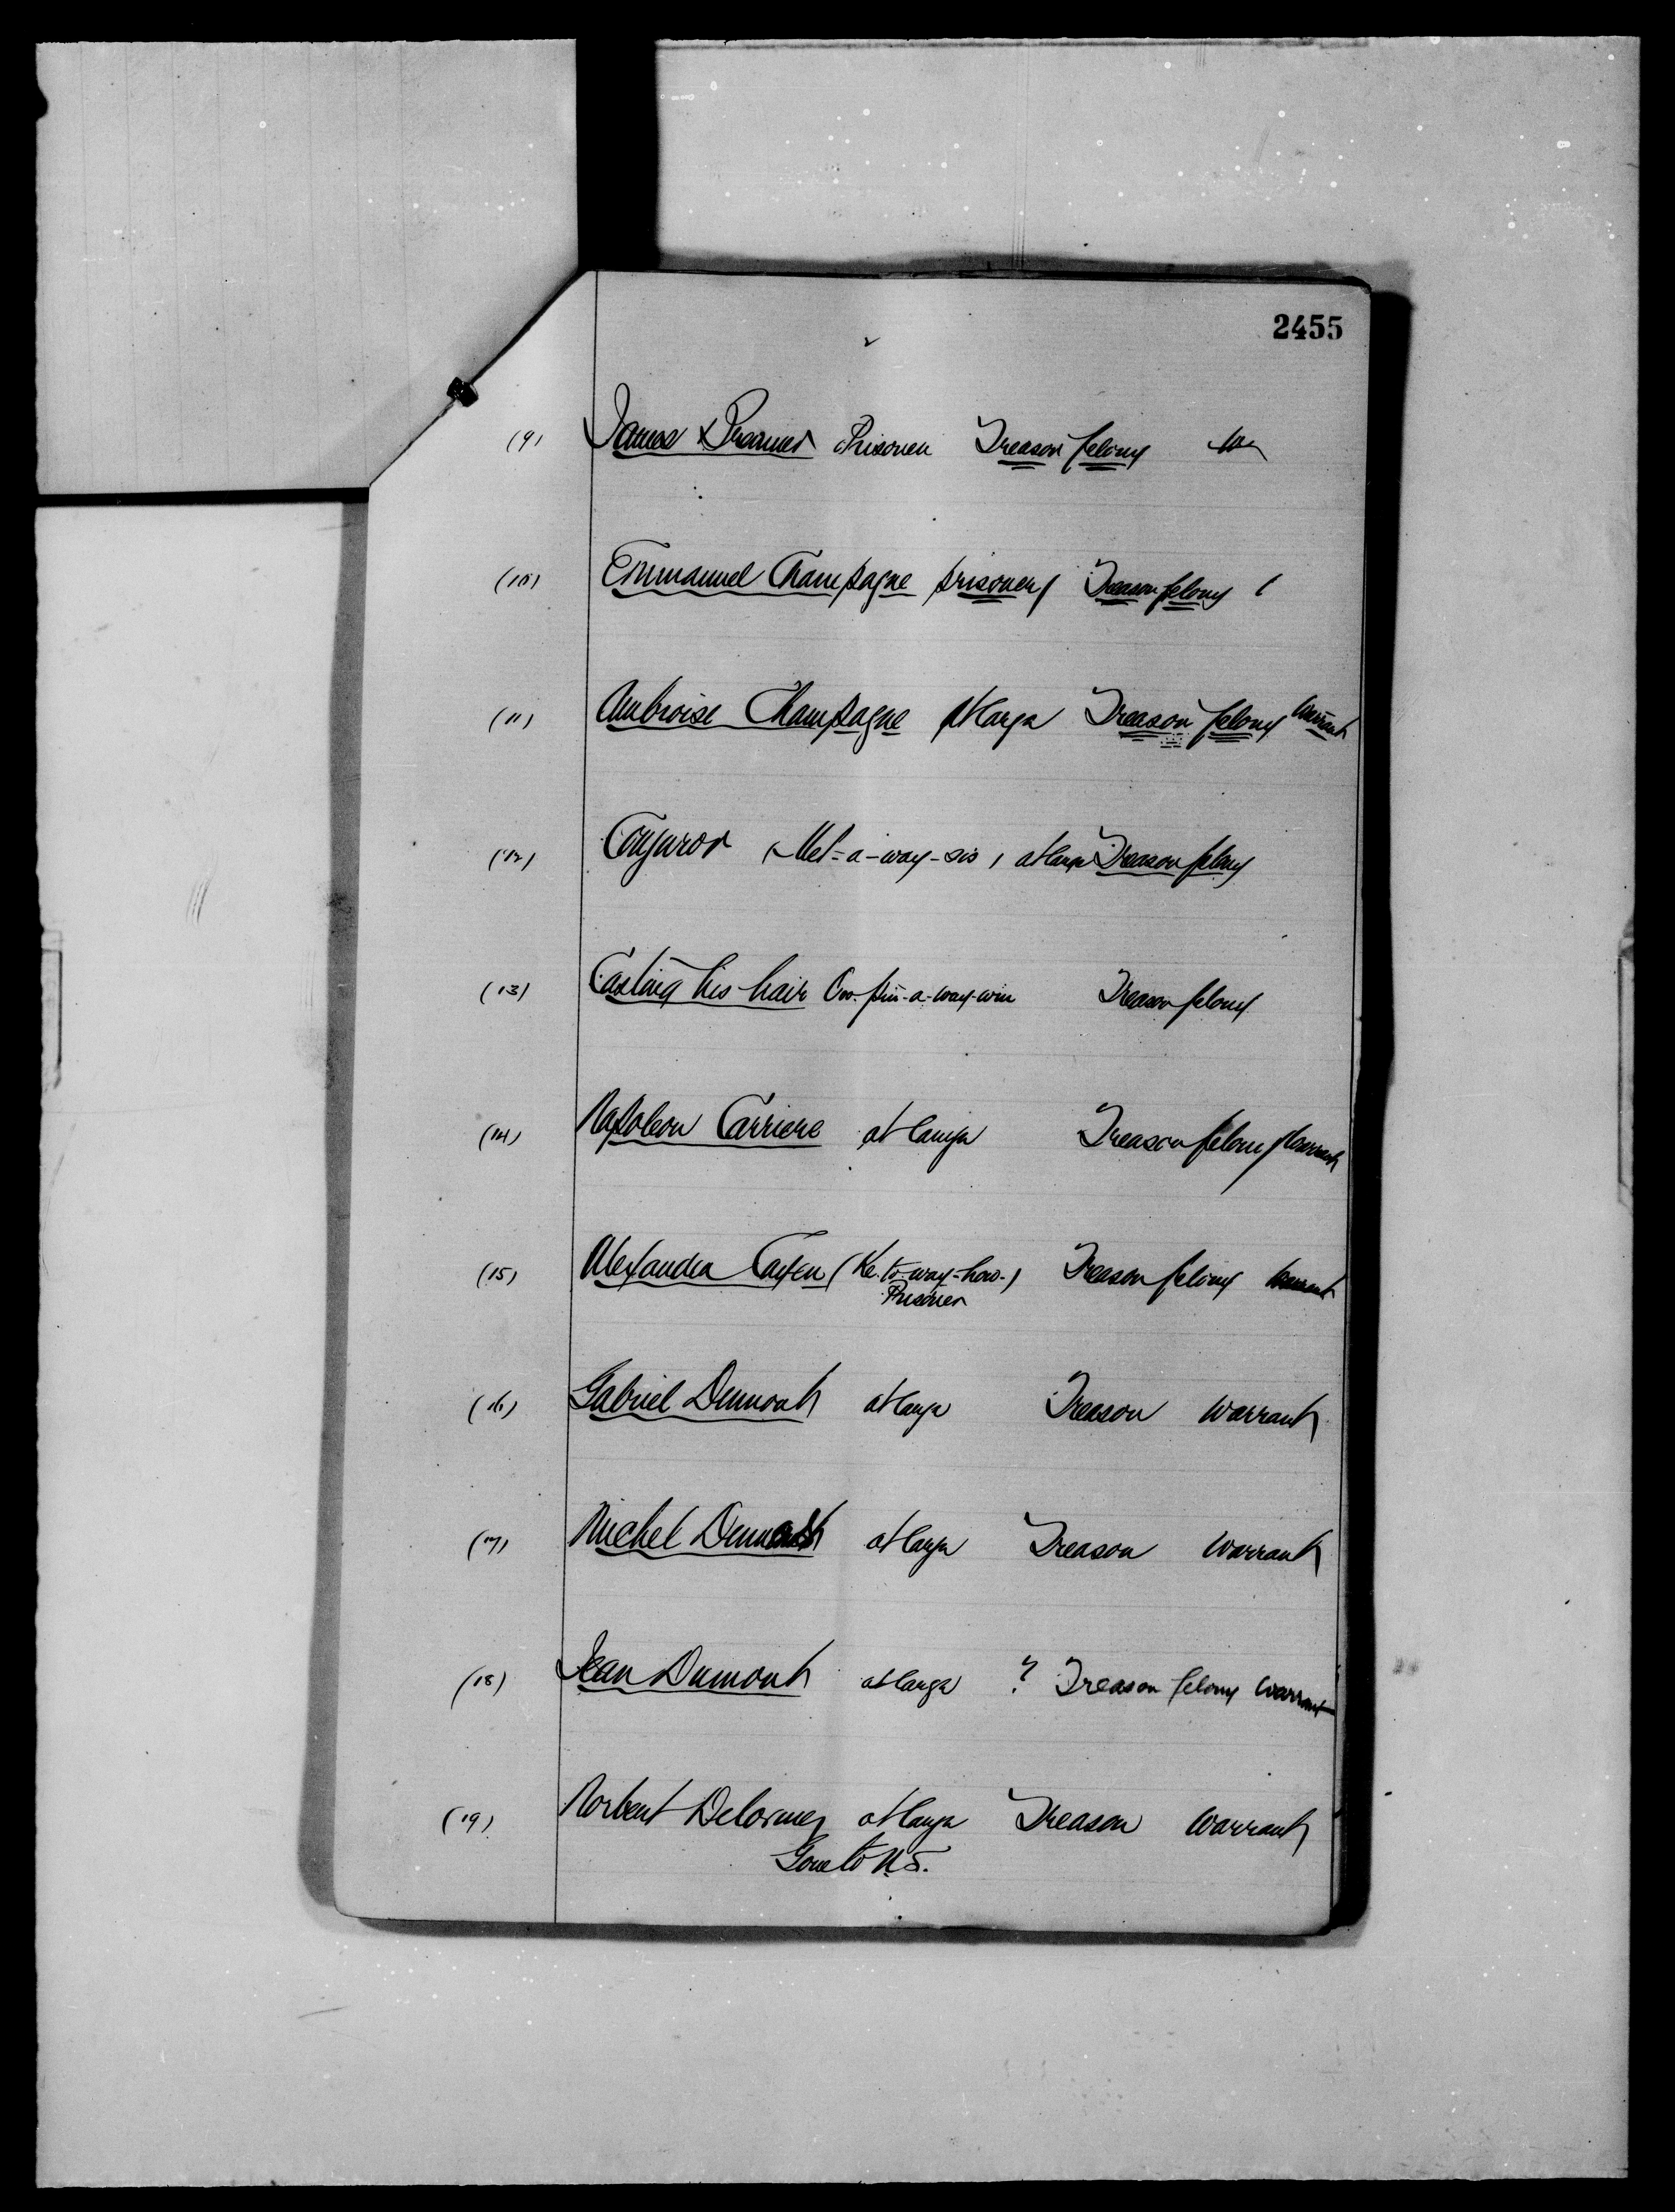 2455
2
(9) James Breamer Prisoner Treason felony
(10) Emmanuel Champagne prisoner Treason felony
(11) Ambroise Champagne At large Treason felony Warrant
(12) Conjuror (Met-a-way-sis) at large Treason felony
(13) Casting his hair Treason felony
(14) Napoleon Carriere at large Treason felony Warrant
(15) Alexander Cayen (Ke-to-way-how-) Treason felony warrant
Prisoner
(16) Gabriel Dumont at large Treason Warrant
(17) Michel Dumont at large Treason Warrant
(18) Jean Dumont at large ? Treason felony Warrant
(19) Norbert Delorme at large Treason Warrant
Gone to U.S.